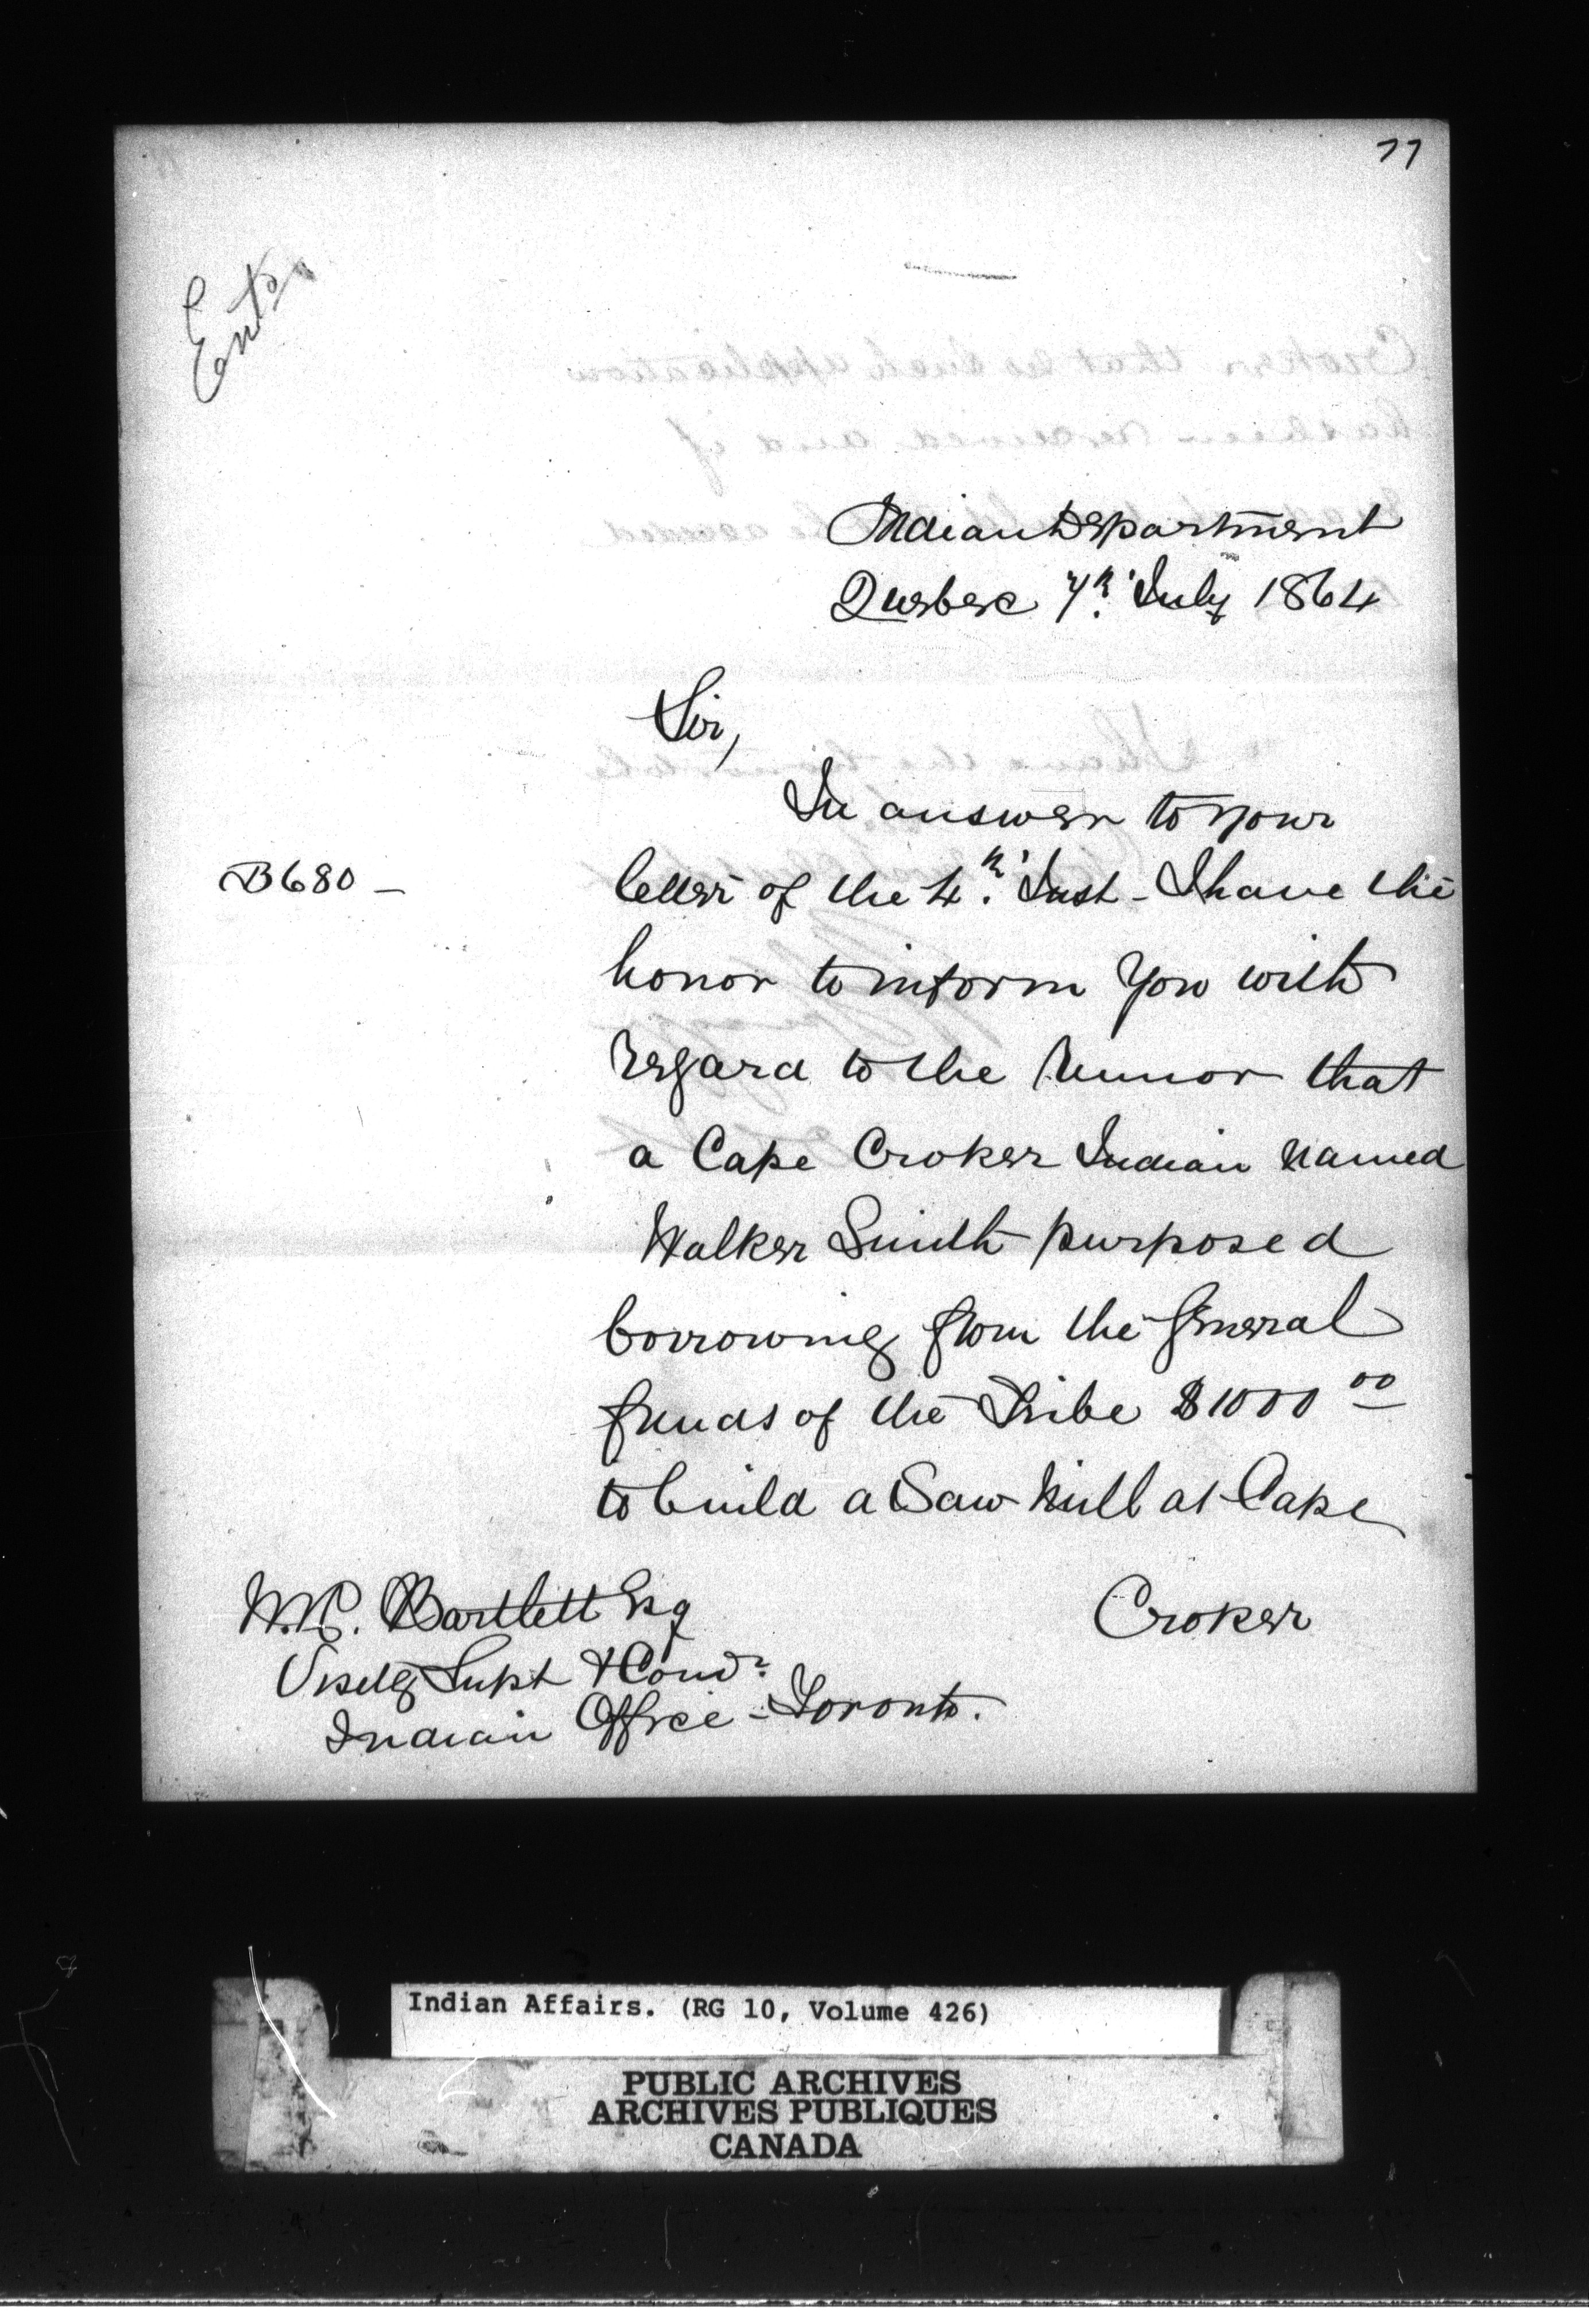 77
Entd
Indian Department
Quebec 7th July 1864
Sir,
In answer to your
B680 -
letter of the 4th Inst - I have the
honor to inform You with
regard to the rumor that
a Cape Croker Indian named
Walker Smith purposed
borrowing from the general
funds of the Tribe $1000 00
to build a Saw Mill at Cape
Croker
W.R. Bartlett Esq
Visitg Supt & Comr
Indian Office - Toronto.
Indian Affairs. (RG 10, Volume 426)
PUBLIC ARCHIVES
ARCHIVES PUBLIQUES
CANADA